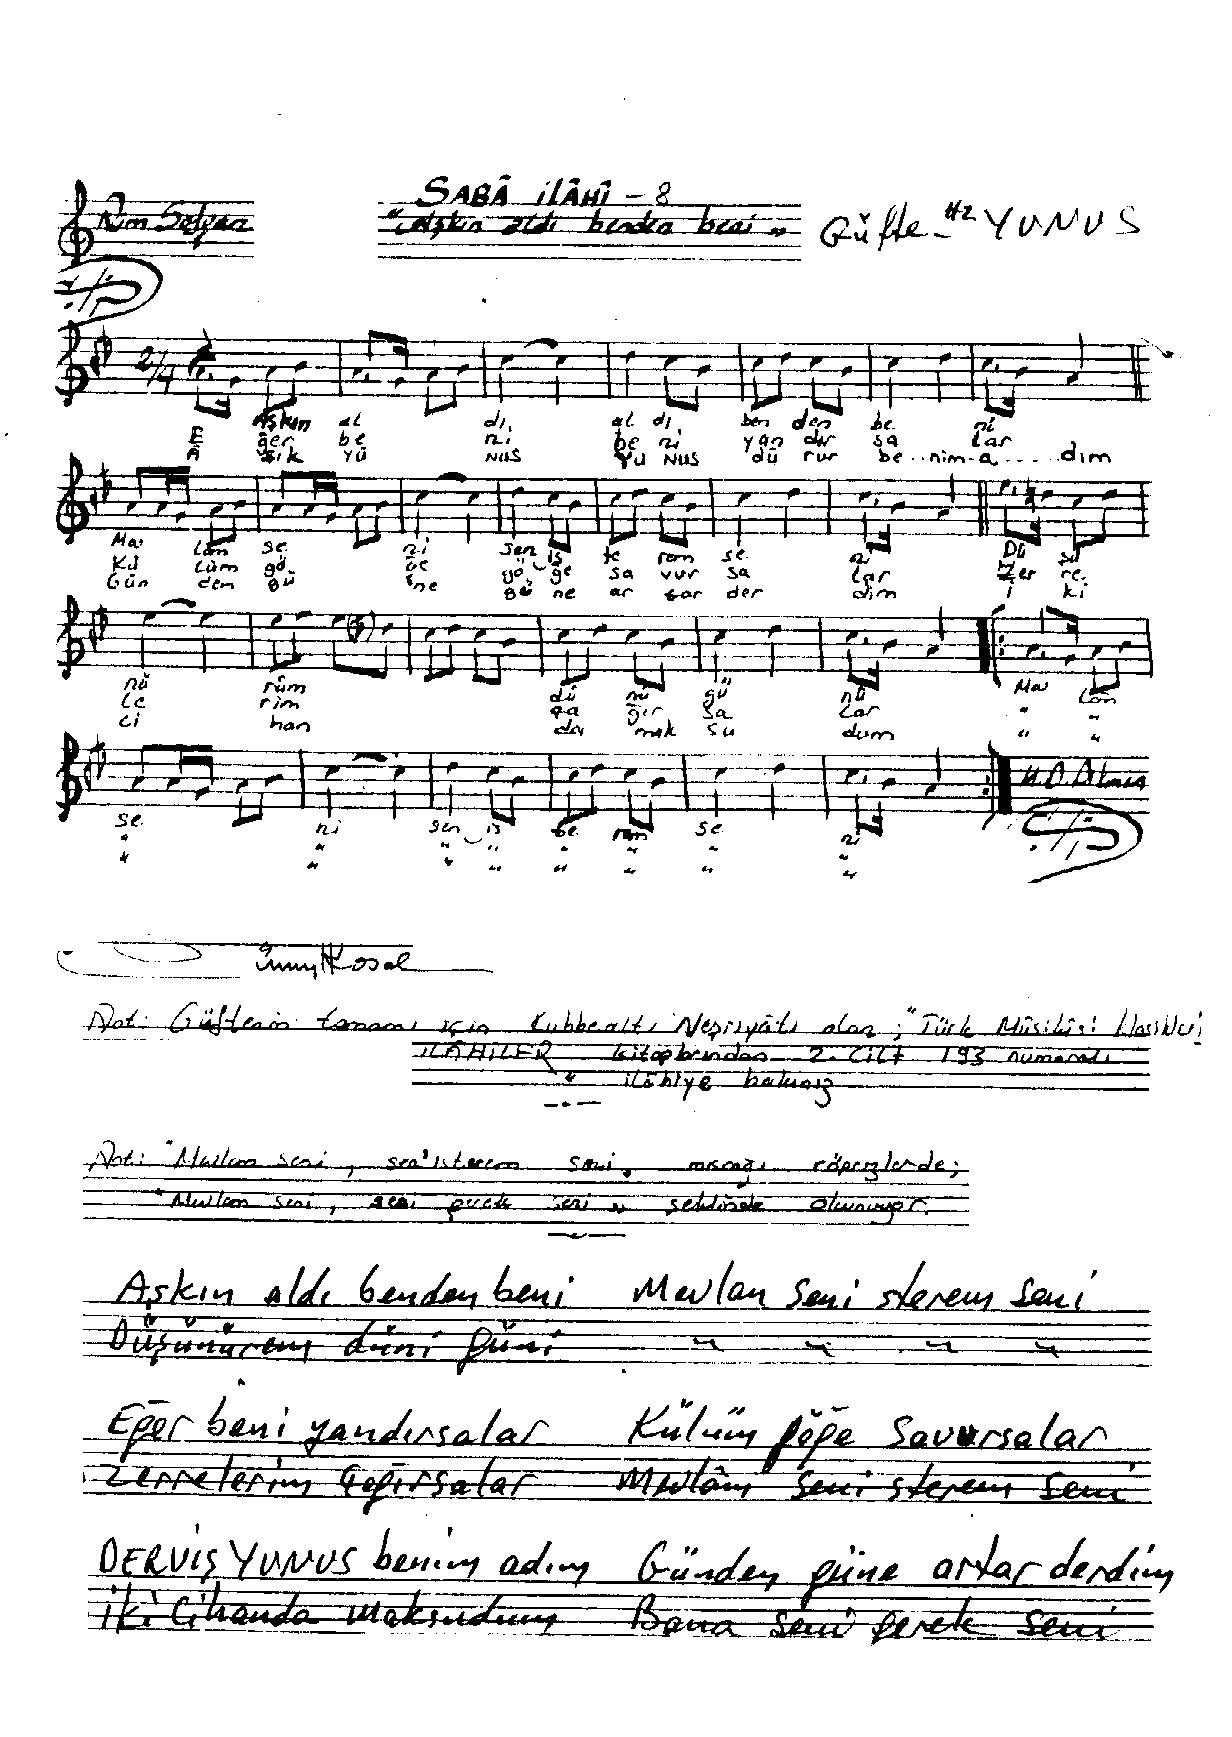 SABÂ İLÂHÎ - 8
Nim Sofyan
"Aşkın aldı benden beni"
Güfte - Hz YUNUS
2/4
Aşkın al dı, al dı, ben den be ni
E ğer be ni be ni yan dır sa lar
Â şık yü NUS YU NUS dü rur be nim a dım
Mev lân se ni sen is te rem se ni Dü şü
Kü lüm gö ğe gö ğe sa vur sa lar Zer re
Gün den gü ne gü ne ar tar der dim i ki
nü rüm dü nü gü nü Mev lân
le rim ça ğır sa lar " "
ci han da mak su dum " "
se ni sen is te rem se ni
" " " " " " " "
" " " " " " " "
Not: Güftenin tamamı için Kubbealtı Neşriyâtı olan; "Türk Mûsikîsi Klasikleri
İLÂHİLER kitaplarından 2. CİLT 193 numaralı
" ilâhiye bakınız
Not: "Mevlam seni, sen isterem seni, mısrağı
"Mevlam seni, seni gerek seni" şeklinde okunuyor.
Aşkın aldı benden beni Mevlan seni isterem seni
Düşünürem düni güni " " " "
Eğer beni yandırsalar Külüm göğe savursalar
Zerrelerim çağırsalar Mevlâm seni isterem seni
DERVİŞ YUNUS benim adım Günden güne artar derdim
İki Cihanda maksudum Bana seni gerek seni